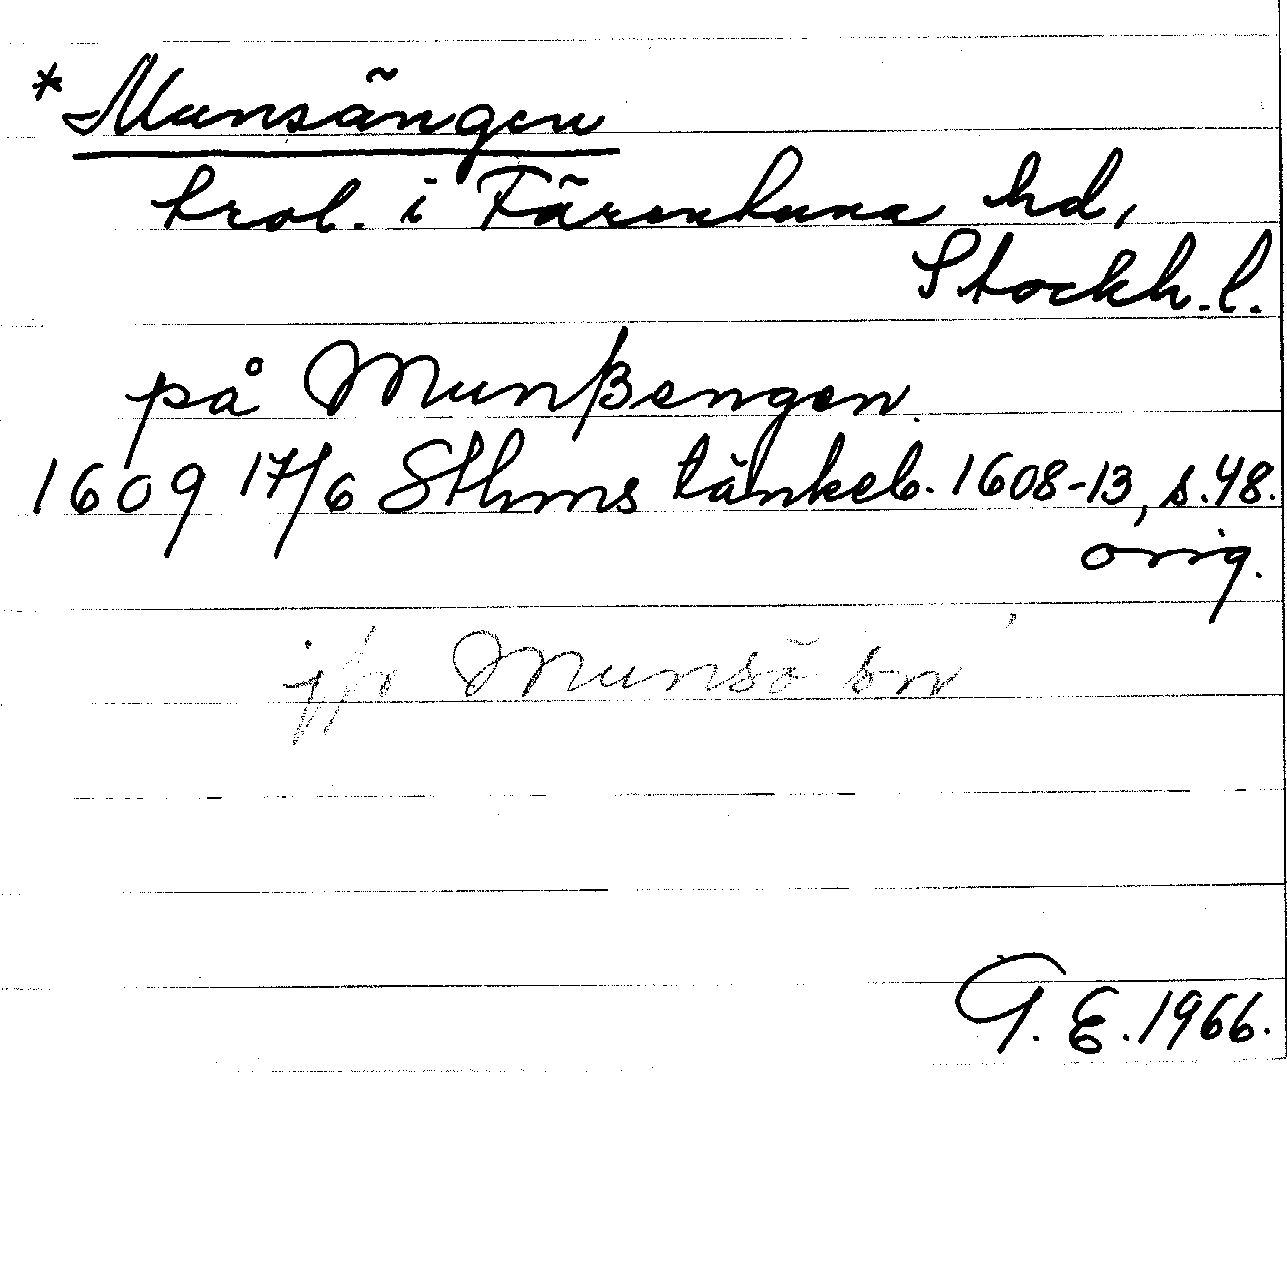 * Munsängen
trol. i Färentuna hd,
Stockh.l.
på Munßengen.
1609 17/6 Sthms tänkeb. 1608-13, s.48.
orig.
jfr Munsö sn
G.E.1966.